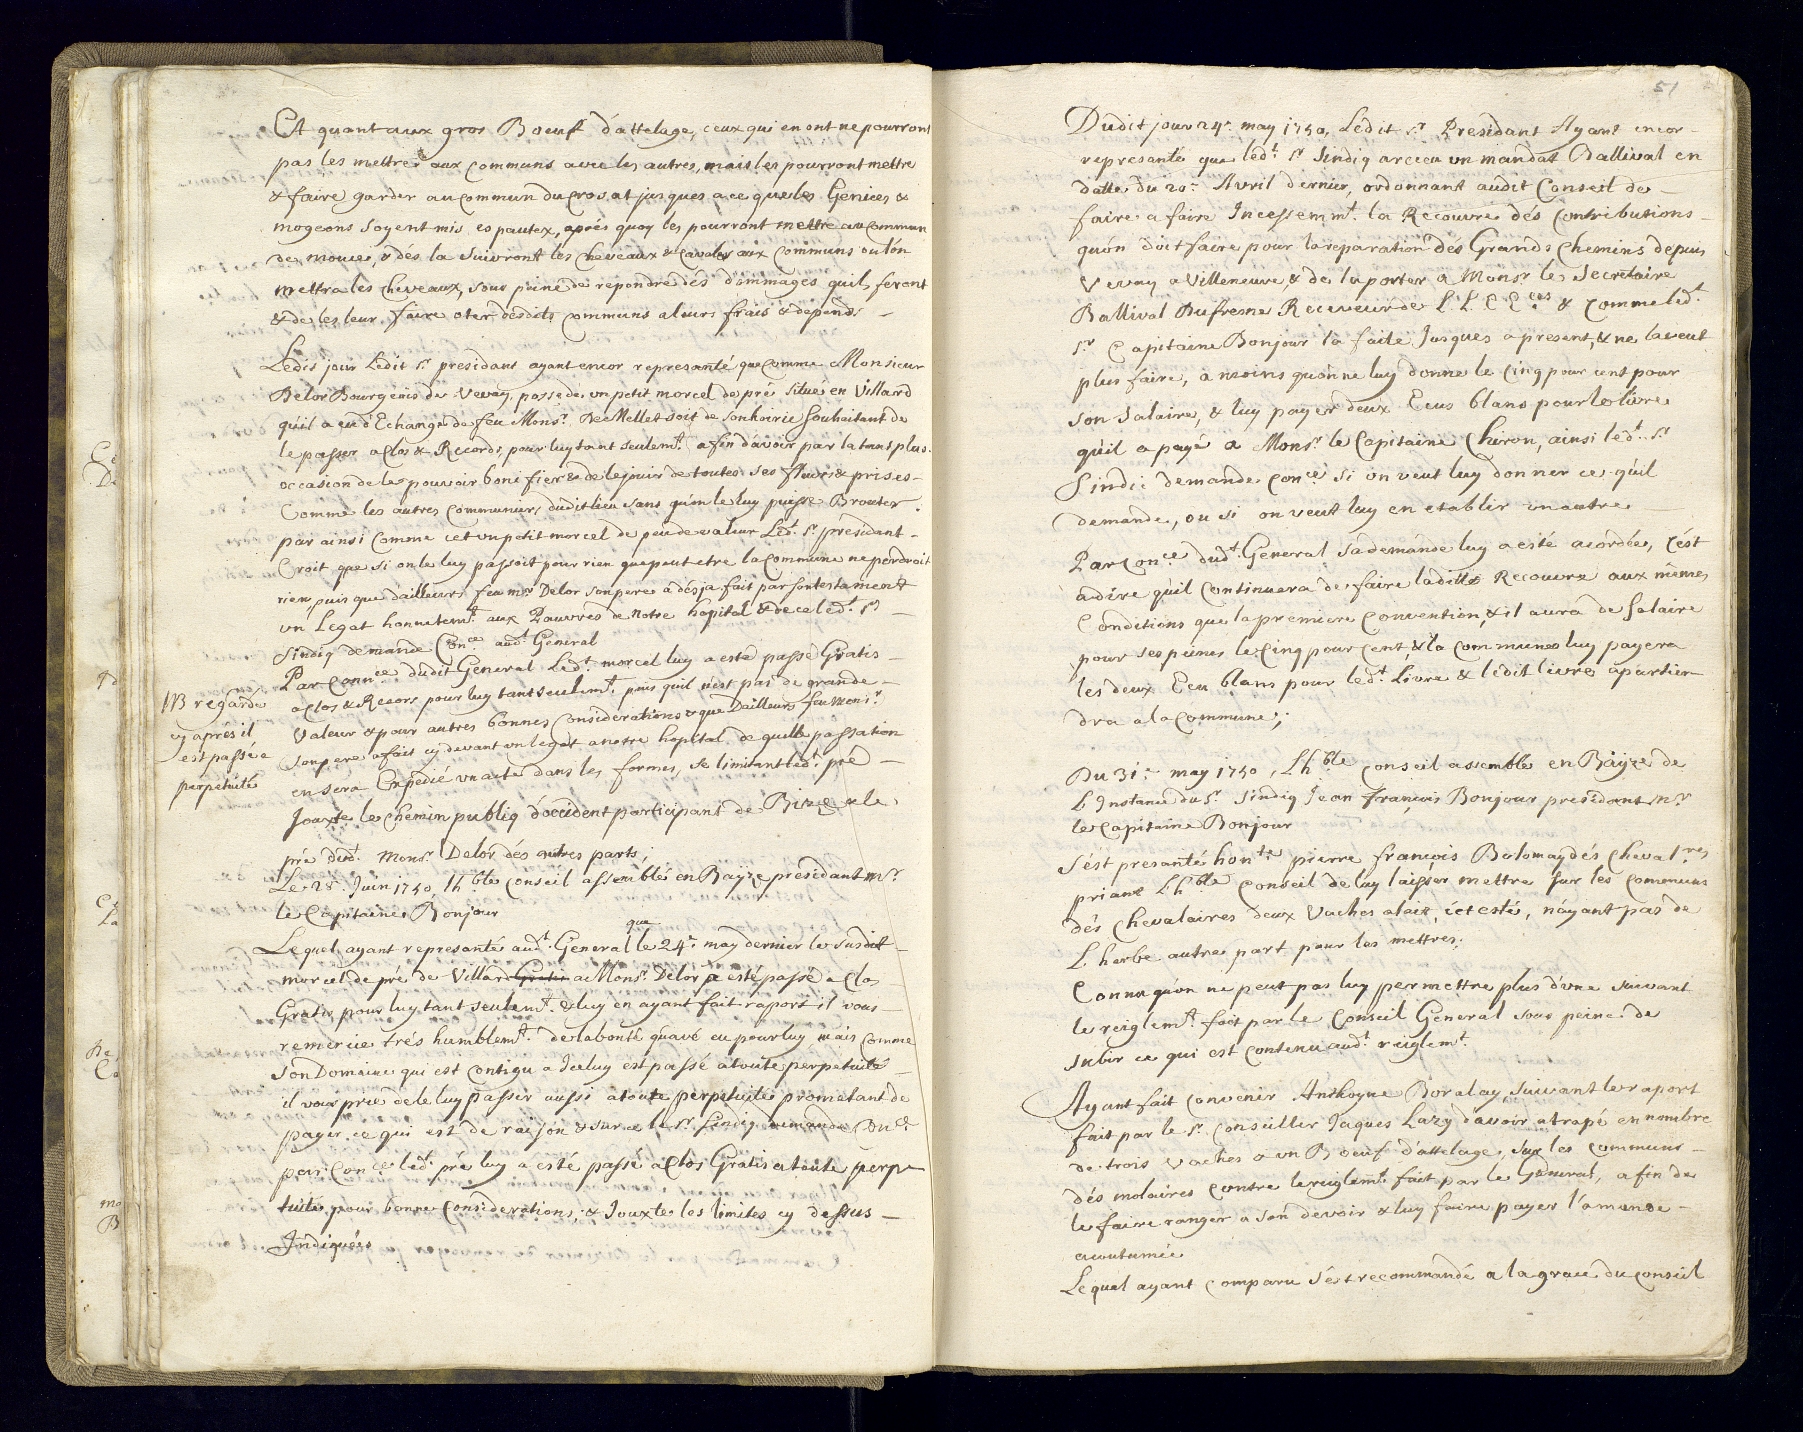 Et quant aux gros Boeufs d'attelage, ceux qui en ont ne pourront
pas les mettre aux communs avec les autres, mais les pourront mettre
& faire garder au commun du Crosat jusques a ce que les Genices &
mogeons soyent mis es pautex, aprés quoy les pourront mettre au commun
de mouce, & dés la suivront les Chevaux & Cavales aux Communs ou lón
mettra les Chevaux, sous peine de repondre dés dommages quils feront
& de les leur faire oter desdits communs a leurs frais & depends. –
Ledit jour Ledit Sr. presidant ayant encor represanté que comme Monsieur
Delor Bourgeois de Vevey, possede un petit morcel de pré situé en Villard
quil a eu d'Echange de feu Monsr. De Mellet soit de son hoirie souhaitant de
le passer a Clos & Records, pour luy tant seulemt. afin d'avoir par la tant plus
occasion de le pouvoir bonifier & de le jouir de toutes ses fleurs & prises –
Comme les autres Communiers dudit lieu sans qu'on le luy puisse Brouter.
par ainsi comme cet un petit morcel de peu de valeur Ledt. Sr. presidant –
Croit que si on le luy passoit pour rien que peut etre la Commune ne perdroit
rien, puis que dailleurs feu mr. Delor son pere a désja fait par son testament
un Legat honnetemt. aux Pauvres de Notre hopital & de ce ledt. Sr. –
Sindiq demande Conce. audt. General
Par connce dudit General Ledt. morcel luy a esté passé Gratis –
a Clos & Recors pour luy tant seulemt. puis quil n'est pas de grande –
valeur & pour autres bonnes Considerations & que Dailleurs feu Monsr.
son pere a fait cy devant un legat a notre hopital de quelle passation
en sera Expedié un acte dans les formes, se limitant ledt. pré –
Jouxte le chemin publiq d'occident participant de Bize & le
pré dudt. Monsr. Delor dés autres parts;
NB regarde
cy aprés il
est passé a
perpetuité
Le 28e. Juin 1750 Lhble conseil assemblé en Baÿze presidant mr.
le Capitaine Bonjour
que
Lequel ayant represanté audt. General le 24e. may dernier le susdit –
morcel de pré de Villard Gratis a Monsr. Delor a esté passé a Clos
Gratis pour luy tant seulemt. & luy en ayant fait raport il vous –
remercie trés humblemt. de la bonté qu'avé eu pour luy mais comme
son Domaine qui est contigu a Iceluy est passé a toute perpetuité –
il vous prie de le luy passer aussi a toute perpetuité prometant de
payer ce qui est de raison & sur ce le Sr. Sindiq demande
par Conce ledt. pré luy a esté passé a Clos Gratis a toute perpe
tuité pour bonne Considerations, & Jouxte les limites cy dessus –
Indiquées
51
Dudit jour 24e. may 1750, Ledit Sr. Presidant Ayant encor –
represanté que ledt. Sr. Sindiq a receu un mandat Ballival en
datte du 20e. Avril dernier, ordonnant audit Conseil de –
faire a faire Incessemmt. la Recouvre dés Contributions –
quón doit faire pour la reparation dés Grands Chemins depuis
Vevay a Villeneuve & de la porter a Monsr. le Secretaire
Ballival Dufresne Receveur de L.L. E Eces & comme ledt.
Sr. Capitaine Bonjour la faite Jusques a present, & ne la veut
plus faire, a moins quon ne luy donne le Cinq pour cent pour
son salaire, & luy payer deux Ecus blans pour le livre
quil a payé a Monsr. le Capitaine Chiron, ainsi ledt. Sr.
Sindic demande conce si on veut luy donner ce quil
demande, ou si on veut luy en etablir un autre –
Par Conce dudt. General sa demande luy a esté acordée, Cést
a dire quil Continuera de faire ladite Recouvre aux mêmes
Conditions que la premiere Convention, & il aura de salaire
pour ses peines le Cinq pour cent, & la commune luy payera
les deux Ecu blans pour ledt. Livre & ledit livre apartien
dra a la Commune;
Du 31e. may 1750, Lhble conseil assemblé en Bayze de
L'Instance du Sr. Sindiq Jean François Bonjour presidant mr.
le Capitaine Bonjour
S'ést presanté honte. pierre françois Bolomay dés Chevalres
priant Lhble Conseil de luy laisser mettre sur les communs
dés Chevalaires deux Vaches a lait, cet esté, n'ayant pas de
L'herbe autre part pour les mettres;
Connu quón ne peut pas luy permettre plus d'une suivant
le reiglemt. fait par le Conseil General sous peine de
subir ce qui est contenu audt. reiglemt.
Ayant fait convenir Anthoyne Boralay, suivant le raport
fait par le Sr. Conseiller Jaques Lazy d'avoir atrapé en nombre
de trois vaches & un Boeuf d'attelage, sur les communs –
dés molaires contre le reiglemt. fait par le General, afin de
le faire ranger a son devoir & luy faire payer l'amande –
acoutumée
Lequel ayant Comparu s'ést recommandé a la grace du Conseil